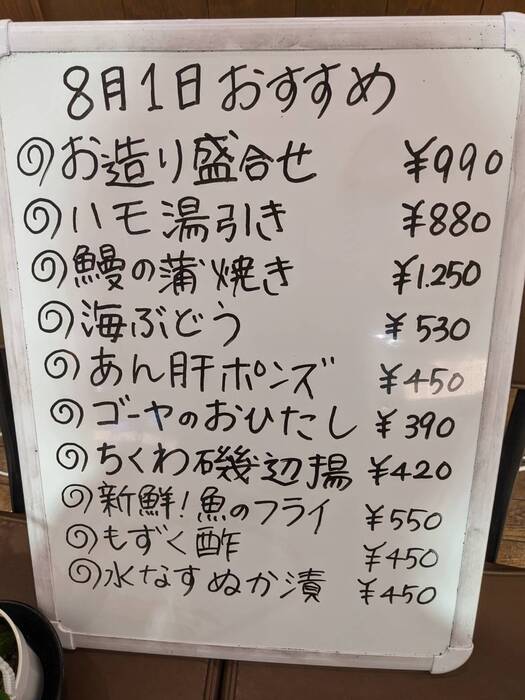 8月1日おすすめ
◎お造り盛合せ ¥990
◎ハモ湯引き ¥880
◎鰻の蒲焼き ¥1.250
◎海ぶどう ¥530
◎あん肝ポンズ ¥450
◎ゴーヤのおひたし ¥390
◎ちくわ磯辺揚 ¥420
◎新鮮!魚のフライ ¥550
◎もずく酢 ¥450
◎水なすぬか漬 ¥450